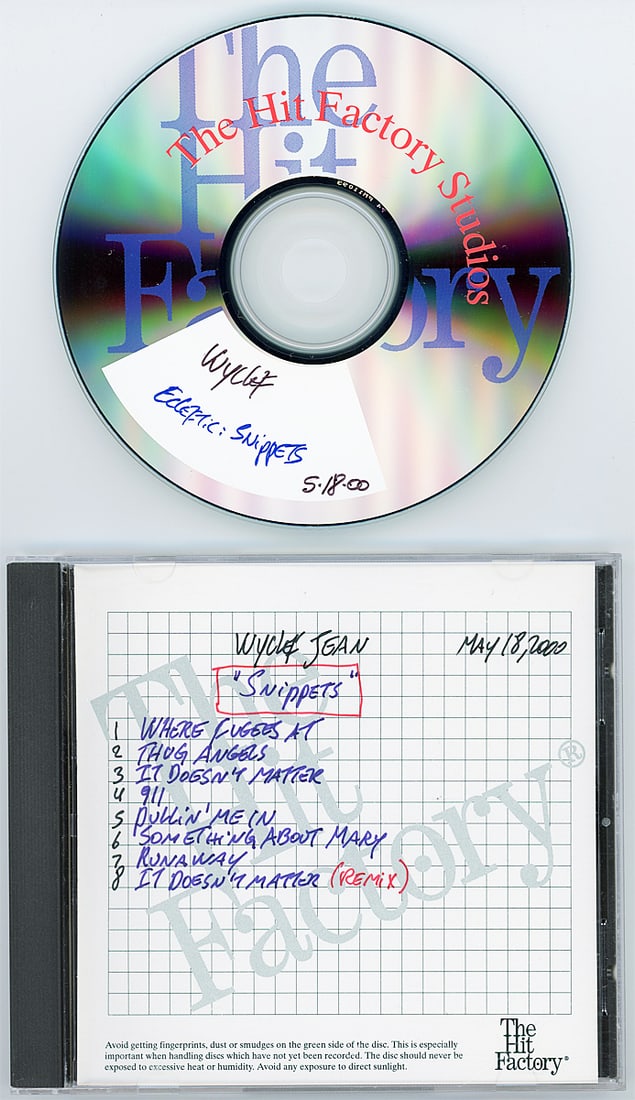 The
Hit
Factory
The Hit Factory Studios
Wyclef
Eclectic: Snippets
5-18-00
The
Hit
Factory®
Wyclef Jean
May 18, 2000
"Snippets"
1 Where Fugees At
2 Thug Angels
3 It Doesn't Matter
4 911
5 Pullin' Me In
6 Something About Mary
7 Runaway
8 It Doesn't Matter (Remix)
Avoid getting fingerprints, dust or smudges on the green side of the disc. This is especially
important when handling discs which have not yet been recorded. The disc should never be
exposed to excessive heat or humidity. Avoid any exposure to direct sunlight.
The
Hit
Factory®